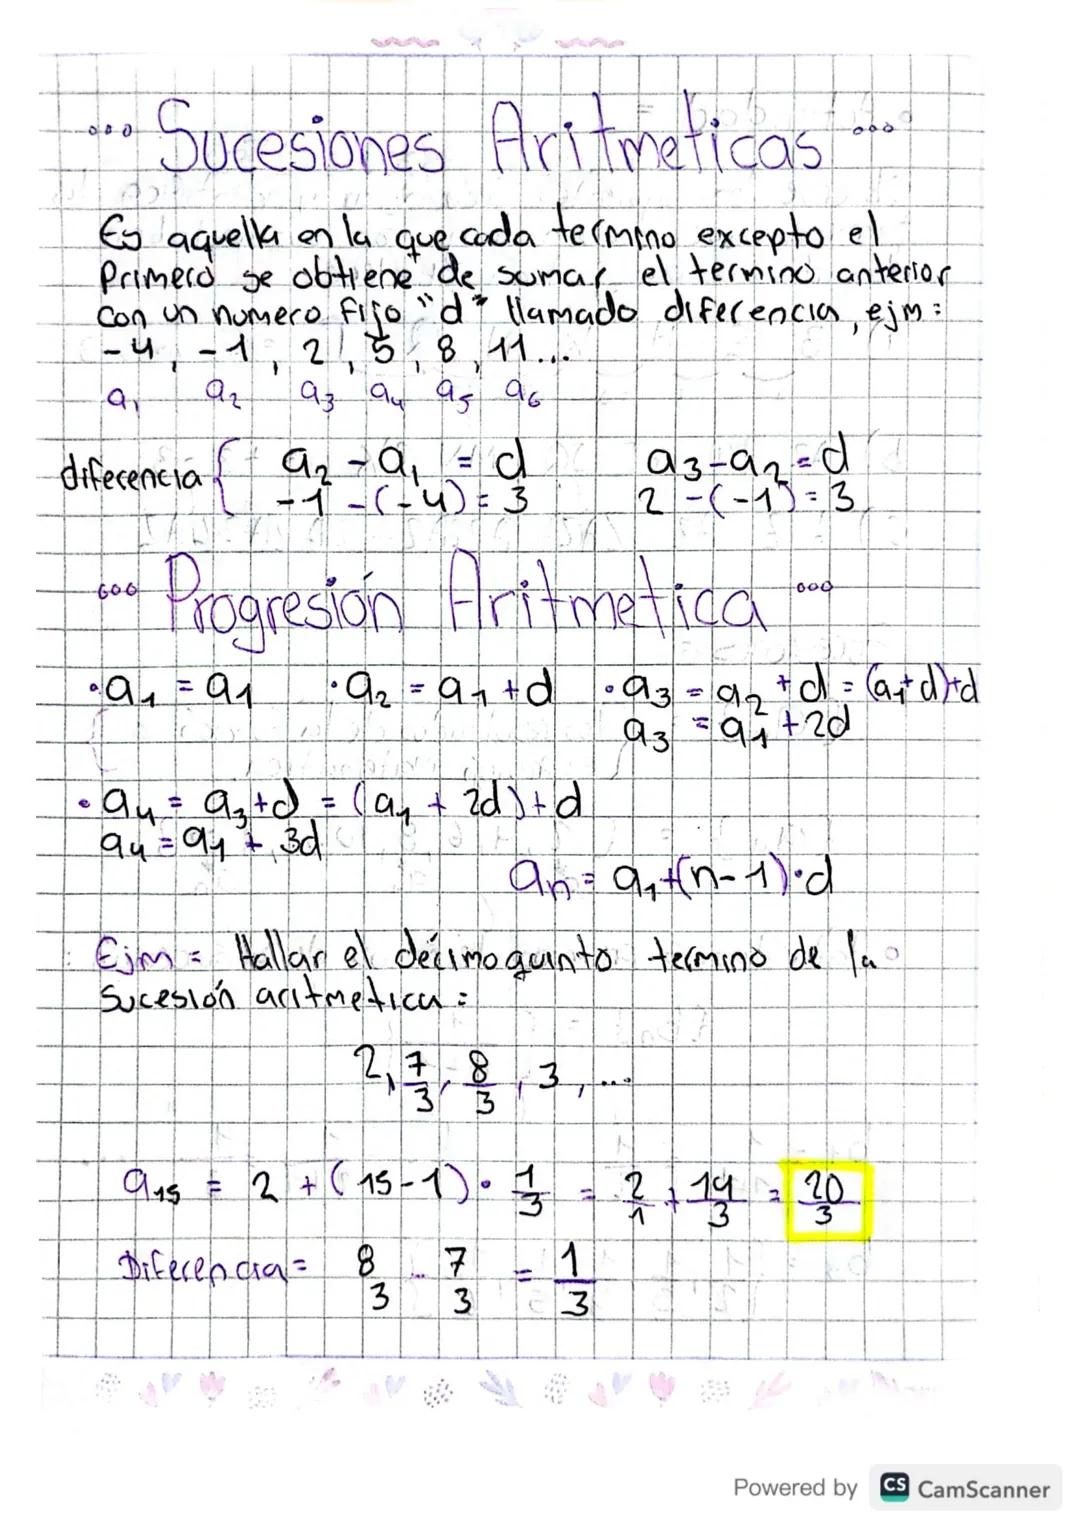 Sucesiones Aritmeticas
Es aquella en la que cada termino excepto el
Primero se obtiene de sumar el termino anterior
con un numero fijo "d" llamado diferencia, ejm:
-4, -1, 2, 5, 8, 11...
a₁ a₂ a₃ a₄ a₅ a₆
diferencia { a₂ - a₁ = d a₃-a₂=d
-1 -(-4) = 3 2 -(-1) = 3
Progresión Aritmetica
•a₁ = a₁ •a₂ = a₁+d •a₃ = a₂+d = (a₁+d)+d
a₃ = a₁+2d
•a₄ = a₃+d = (a₁ + 2d)+d
a₄=a₁ + 3d
aₙ = a₁+(n-1)•d
Ejm = Hallar el décimoquinto termino de la
Sucesión aritmetica =
2, 7/3, 8/3, 3, ...
a₁₅ = 2 + (15-1) • 1/3 = 2/1 + 14/3 = 20/3
Diferencia = 8/3 - 7/3 = 1/3
Powered by CS CamScanner